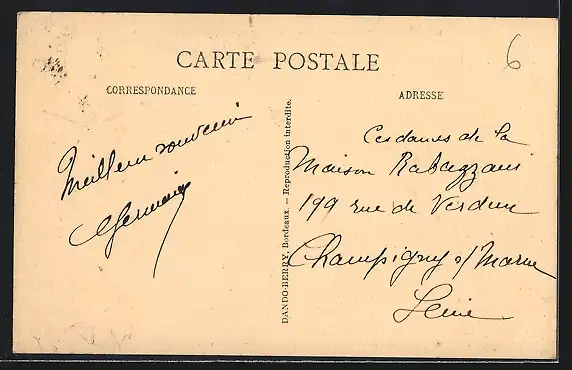 CARTE POSTALE
6
CORRESPONDANCE
ADRESSE
Meilleur souvenir
Germaine
DANDO-BERRY, Bordeaux. — Reproduction interdite.
de la
Maison Rabazzani
199 rue de Verdun
Champigny s/ Marne
Seine